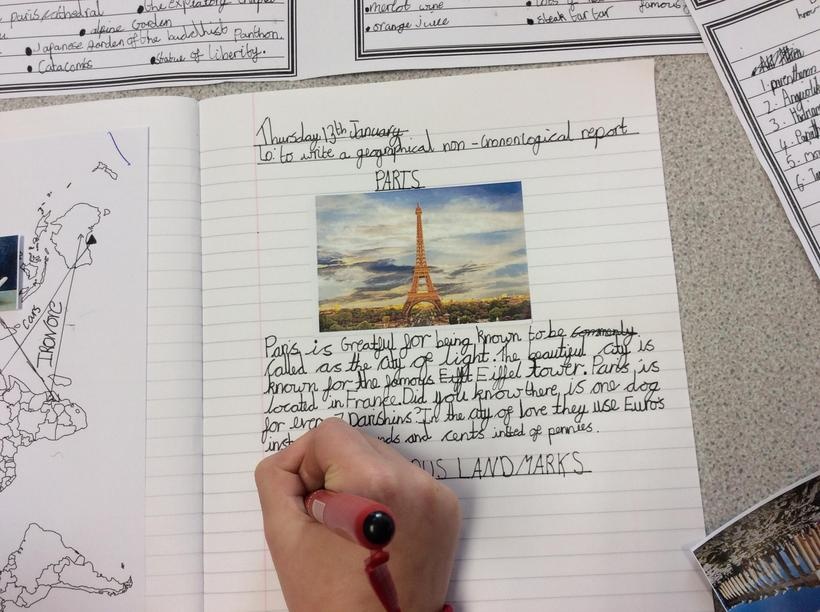 Paris/cathedral
• the explatory chapel
• alpine Garden
• Japanese Garden of the buddhist Panthon.
• Catacombs
• Statue of liberity.
• merlot wine
• orange juice
• steak tar tar
famous
1. parenthenon
2.
3.
4.
5.
6.
cars
IRON ORE
Thursday 13th January
Lo: to write a geographical non-crononlogical report
PARIS
Paris is Greatful for being known to be commonly
called as the city of light. The beautiful city is
known for the famous Effl Eiffel tower. Paris is
located in France. Did you know there is one dog
for every 7 Parishins? In the city of love they use Euros
inst nds and cents insted of pennies.
OUS LANDMARKS